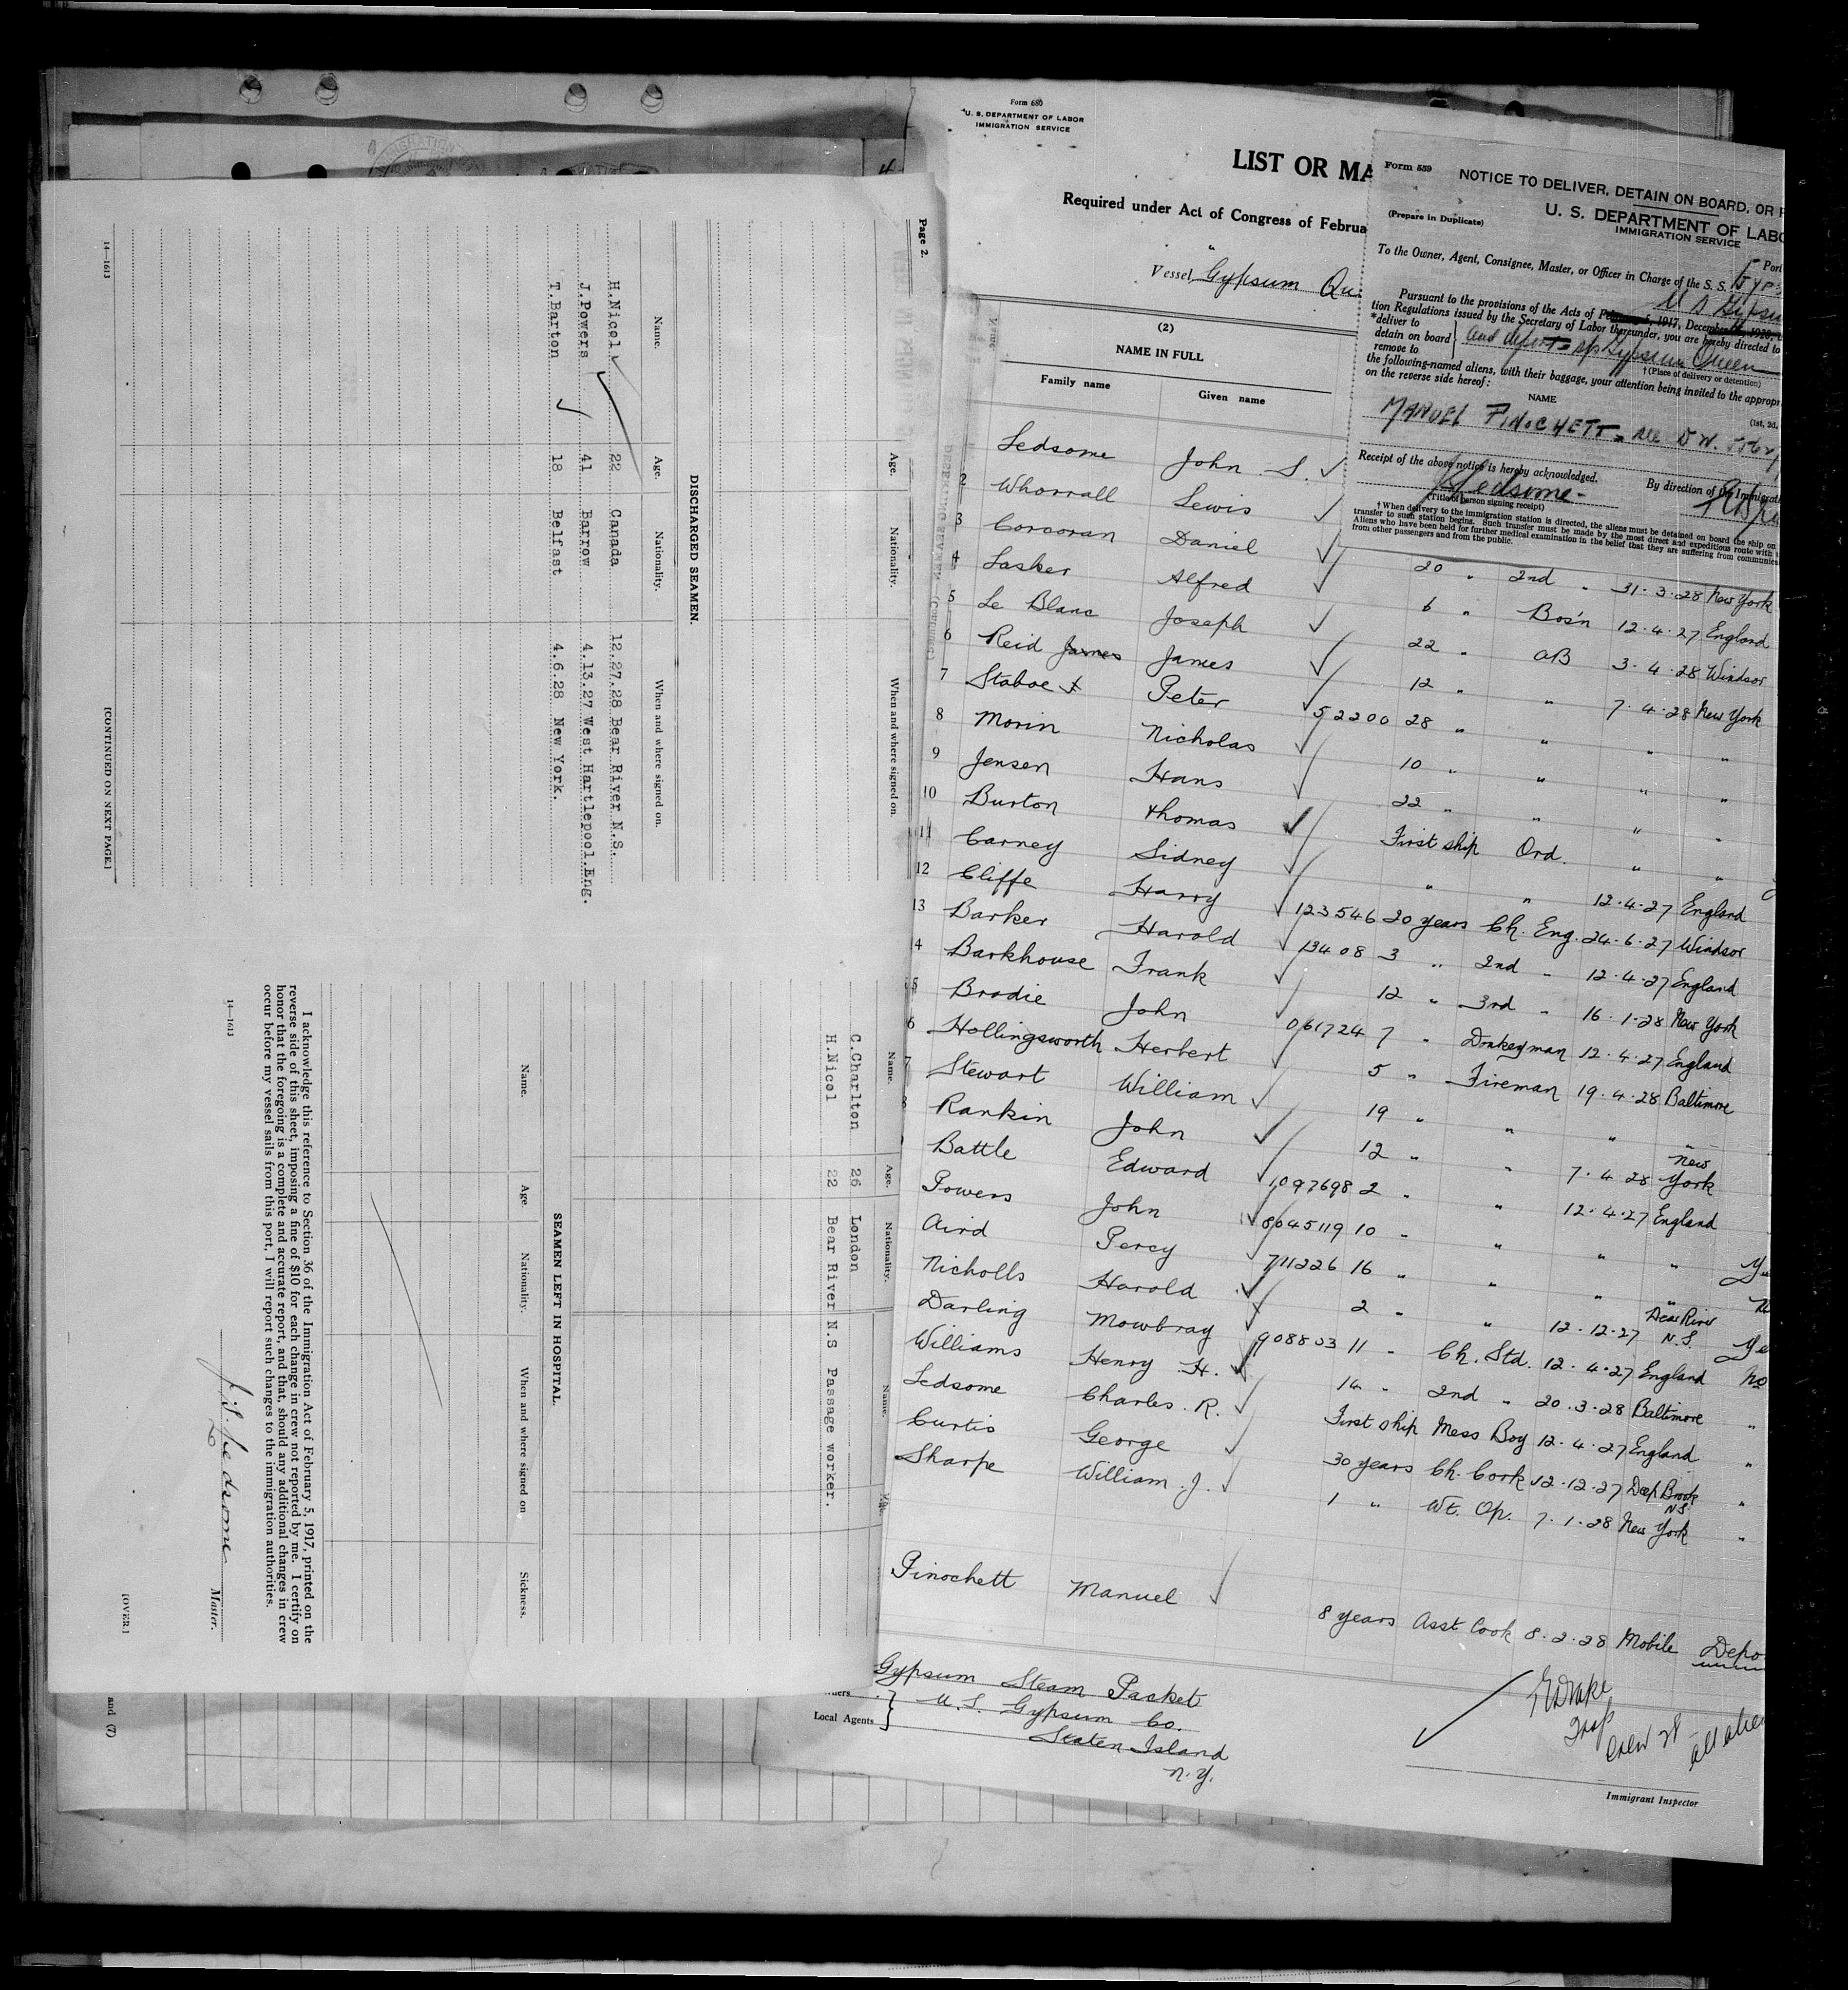 Page 2.
Name. Age. Nationality. When and where signed on.
DISCHARGED SEAMEN.
Name. Age. Nationality. When and where signed on.
H.Nicol 22 Canada 12.27.28 Bear River N.S.
J.Powers 41 Barrow 4.13.27 West Hartlepool.Eng.
T.Barton 18 Belfast 4.6.28 New York.
14—1613 [CONTINUED ON NEXT PAGE.]
Name. Age. Nationality.
C.Charlton 26 London
H.Nicol 22 Bear River N.S Passage worker.
SEAMEN LEFT IN HOSPITAL.
Name. Age. Nationality. When and where signed on Sickness.
I acknowledge this reference to Section 36 of the Immigration Act of February 5, 1917, printed on the
reverse side of this sheet, imposing a fine of $10 for each change in crew not reported by me. I certify on
honor that the foregoing is a complete and accurate report, and that, should any additional changes in crew
occur before my vessel sails from this port, I will report such changes to the immigration authorities.
14—1613
J. S. Ledsome Master.
[OVER.]
and (7)
Form 680
U. S. DEPARTMENT OF LABOR
IMMIGRATION SERVICE
LIST OR MA
Required under Act of Congress of Februa
Vessel Gypsum Qu
(2)
NAME IN FULL
Family name Given name
Form 559
NOTICE TO DELIVER, DETAIN ON BOARD, OR
(Prepare in Duplicate)
U. S. DEPARTMENT OF LABO
IMMIGRATION SERVICE
Port
To the Owner, Agent, Consignee, Master, or Officer in Charge of the S. S. Gyps
U S Gypsu
Pursuant to the provisions of the Acts of February 5, 1917, December 26, 1920,
tion Regulations issued by the Secretary of Labor thereunder, you are hereby directed to
*deliver to
detain on board and deport s/s Gypsum Queen
remove to
†(Place of delivery or detention)
the following-named aliens, with their baggage, your attention being invited to the appropr
on the reverse side hereof:
NAME
(1st, 2d,
MANUEL PINOCHETT
Receipt of the above notice is hereby acknowledged.
By direction of the Immigrat
Ledsome
(Title of person signing receipt)
† When delivery to the immigration station is directed, the aliens must be detained on board the ship on
transfer to such station begins. Such transfer must be made by the most direct and expeditious route with
Aliens who have been held for further medical examination in the belief that they are suffering from communica
from other passengers and from the public.
Ledsome John S.
2 Whorrall Lewis
3 Corcoran Daniel 20 " 2nd " 31.3.28 New York
4 Lasker Alfred 6 " Bos'n 12.4.27 England
5 Le Blanc Joseph 22 " AB 3.4.28 Windsor
6 Reid James James 12 " " 7.4.28 New York
7 Staboe Peter 52200 28 " " " "
8 Morin Nicholas 10 " " " "
9 Jensen Hans 22 " " " "
10 Burton Thomas First ship Ord. " "
11 Carney Sidney " " 12.4.27 England
12 Cliffe Harry 123546 20 years Ch. Eng. 24.6.27 Windsor
13 Barker Harold 13408 3 " 2nd " 12.4.27 England
4 Barkhouse Frank 12 " 3rd " 16.1.28 New York
5 Brodie John 061724 7 " Donkeyman 12.4.27 England
6 Hollingsworth Herbert 5 " Fireman 19.4.28 Baltimore
7 Stewart William 19 " " " "
8 Rankin John 12 " " 7.4.28 New York
Battle Edward 1097698 2 " " 12.4.27 England
Powers John 8045119 10 " " " "
Aird Percy 711226 16 " " " "
Nicholls Harold 2 " " 12.12.27 Bear River N.S.
Darling Mowbray 908803 11 " Ch. Std. 12.4.27 England No
Williams Henry H. 14 " 2nd " 20.3.28 Baltimore "
Ledsome Charles R. First ship Mess Boy 12.4.27 England "
Curtis George 30 years Ch. Cook 12.12.27 Deep Brook N.S. "
Sharpe William J. 1 " Wt. Op. 7.1.28 New York "
Pinochett Manuel 8 years Asst. Cook 8.2.28 Mobile Depo
Gypsum Steam Packet
Local Agents U.S. Gypsum Co.
Staten Island
N.Y.
Drake
Insp
Crew 28
Immigrant Inspector